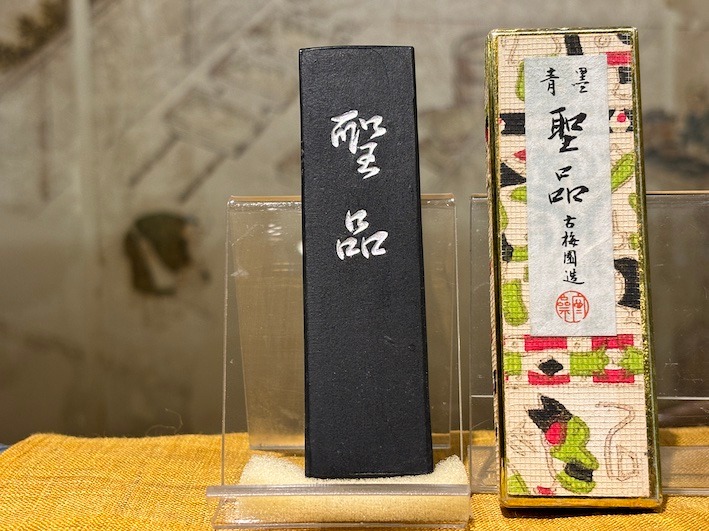 聖品
青墨
聖品
古梅園造